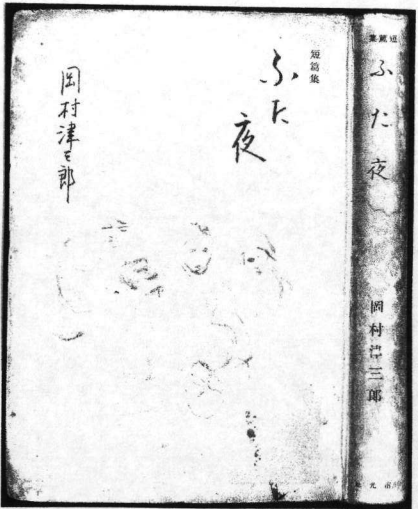 短篇集
ふた夜
岡村津三郎
短篇集
ふた夜
岡村津三郎